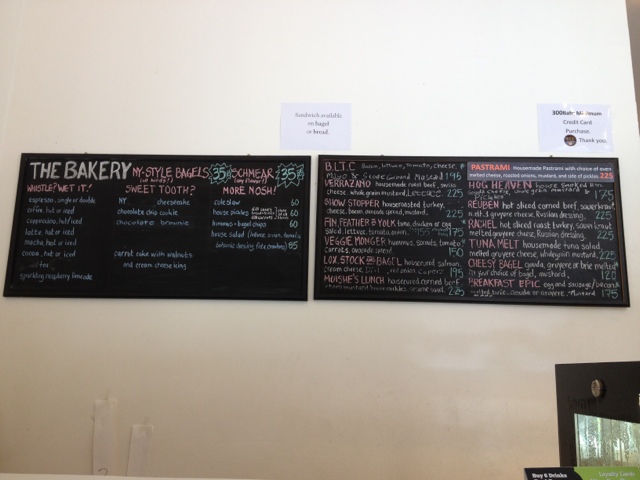 Sandwich available
on bagel
or bread.
Credit Card
Purchase.
Thank you.
THE BAKERY
NY-STYLE BAGELS 35
SCHMEAR 35
WHISTLE? WET IT!
espresso, single or double
coffee, hot or iced
cappuccino, hot/iced
latte, hot or iced
mocha, hot or iced
cocoa, hot or iced
sparkling raspberry limeade
SWEET TOOTH?
NY cheesecake
chocolate chip cookie
chocolate brownie
carrot cake with walnuts
and cream cheese icing
MORE NOSH!
coleslaw 60
house pickles 60
hummus + bagel chips 60
house salad
balsamic dressing 85
B.L.T.C. Bacon, lettuce, tomato, cheese,
Mayo & Stone Ground Mustard 195
VERRAZANO housemade roast beef, swiss
cheese, whole grain mustard, Lettuce 225
SHOW STOPPER house roasted turkey,
cheese, bacon, mustard. 225
FIN, FEATHER & YOLK tuna, chicken or egg
salad, lettuce, tomato, onion, 175
VEGGIE MONGER hummus, sprouts, tomato,
carrots, avocado spread 150
LOX, STOCK AND BAGEL housecured salmon,
cream cheese, red onion, capers 195
MOISHE'S LUNCH housecured corned beef,
225
PASTRAMI Housemade Pastrami with choice of oven
melted cheese, roasted onions, mustard, and side of pickles. 225
HOG HEAVEN house smoked
175
REUBEN hot sliced corned beef, sauerkraut,
melted gruyere cheese, Russian dressing. 225
RACHEL hot sliced roast turkey, sauerkraut
melted gruyere cheese, Russian dressing. 225
TUNA MELT housemade tuna salad,
melted gruyere cheese, wholegrain mustard. 225
CHEESY BAGEL gouda, gruyere or brie melted
in your choice of bagel, mustard. 120
BREAKFAST EPIC egg and sausage/bacon,
175
Buy 6 Drinks
Loyalty Cards